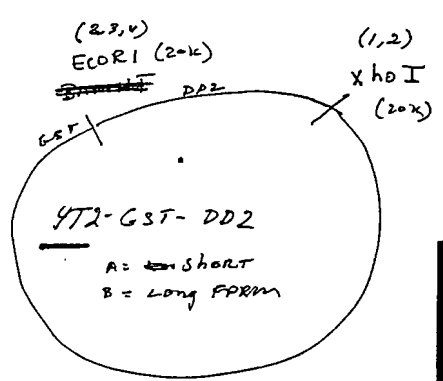 (2,3,4)
ECORI (20K)
DD2
GST
(1,2)
XhoI
(20K)
YT2-GST-DD2
A= SHORT
B = Long FORM